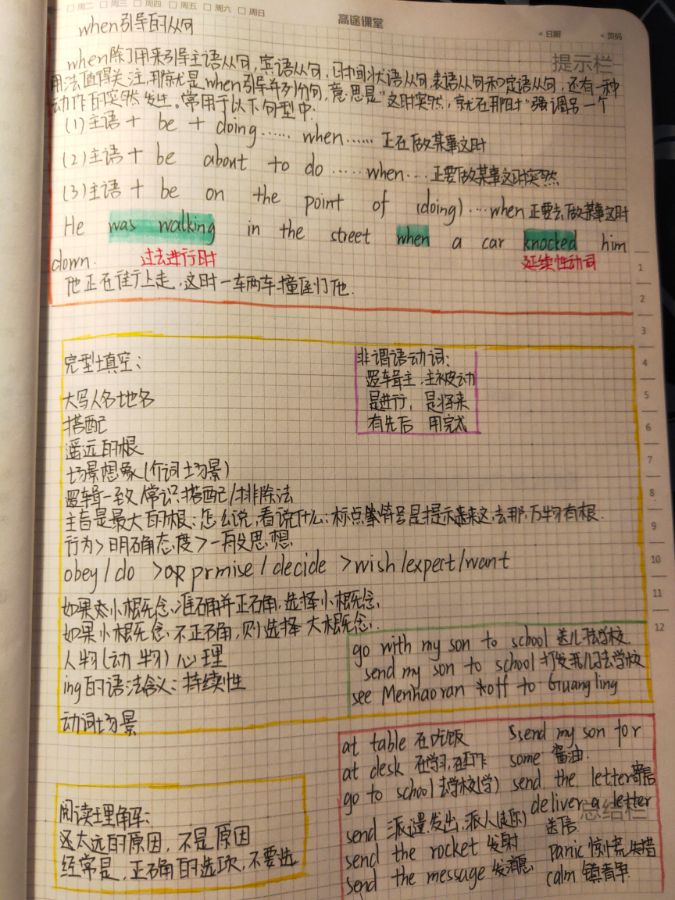 □ 周二 □ 周三 □ 周四 □ 周五 □ 周六 □ 周日
高途课堂
◂ 日期 ◂ 页码
when引导的从句
提示栏
when除了用来引导主语从句,宾语从句,时间状语从句,表语从句和定语从句,还有一种
用法值得关注,那就是when引导并列句,意思是"这时突然,就在那时"强调另一个
动作的突然发生。常用于以下句型中.
(1)主语 + be + doing …… when …… 正在做某事这时
(2)主语 + be about to do …… when … 正要做某事这时突然
(3)主语 + be on the point of (doing) … when 正要去做某事这时
He was walking in the street when a car knocked him
down. 过去进行时 延续性动词
他正在街上走,这时一车两车撞压们他.
1
2
3
4
5
6
7
8
9
10
11
12
完型填空:
大写人名地名
搭配
遥远的根
场景想象(介词场景)
逻辑一致/常识:搭配/排除法
主旨是最大的根:怎么说,看说什么:标点符号是提示来这,去那,万物有根.
行为>明确态度>一般思想
obey/do >or prmise/decide >wish/expert/want
如果大小概念,准确并正确,选择小概念,
如果小概念,不正确,则选择大概念.
人物(动物)心理
ing的语法含义:持续性
动词场景
非谓语动词:
逻辑主,主被动
是进行,是将来
有先后 用完式
go with my son to school 送儿子去学校
send my son to school 打发我儿子去学校
see Menhaoran off to Guangling
阅读理解:
这太远的原因,不是原因
经常是,正确的选项,不要选
at table 在吃饭
at desk 在学习,在工作
go to school 去学校(学)
send 派遣,发出,派人
send the rocket 发射
send the message 发消息
send my son for
some 酱油.
send the letter 寄信
deliver a letter
送信
panic 惊慌失措
calm 镇静
总结栏